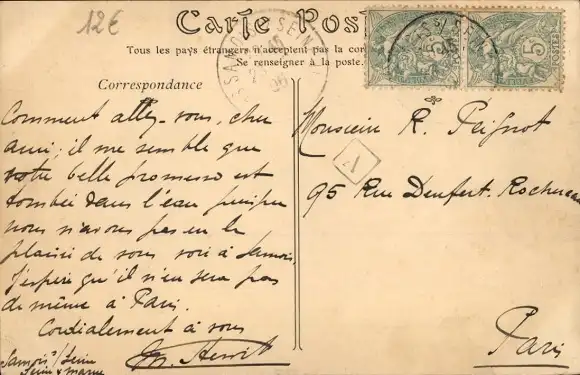 12€
Carte Post
Tous les pays étrangers n'acceptent pas la cor
Se renseigner à la poste.
Correspondance
Comment allez-vous, cher
ami; il me semble que
votre belle promesse est
tombée dans l'eau puisque
nous n'avons pas eu le
plaisir de vous voir à Samois.
J'espère qu'il n'en sera pas
de même à Paris.
Cordialement à vous
Samois s/ Seine
Seine & Marne
Monsieur R. Peignot
95 Rue Denfert-Rochereau
Paris
A
SAMOIS
5
POSTES